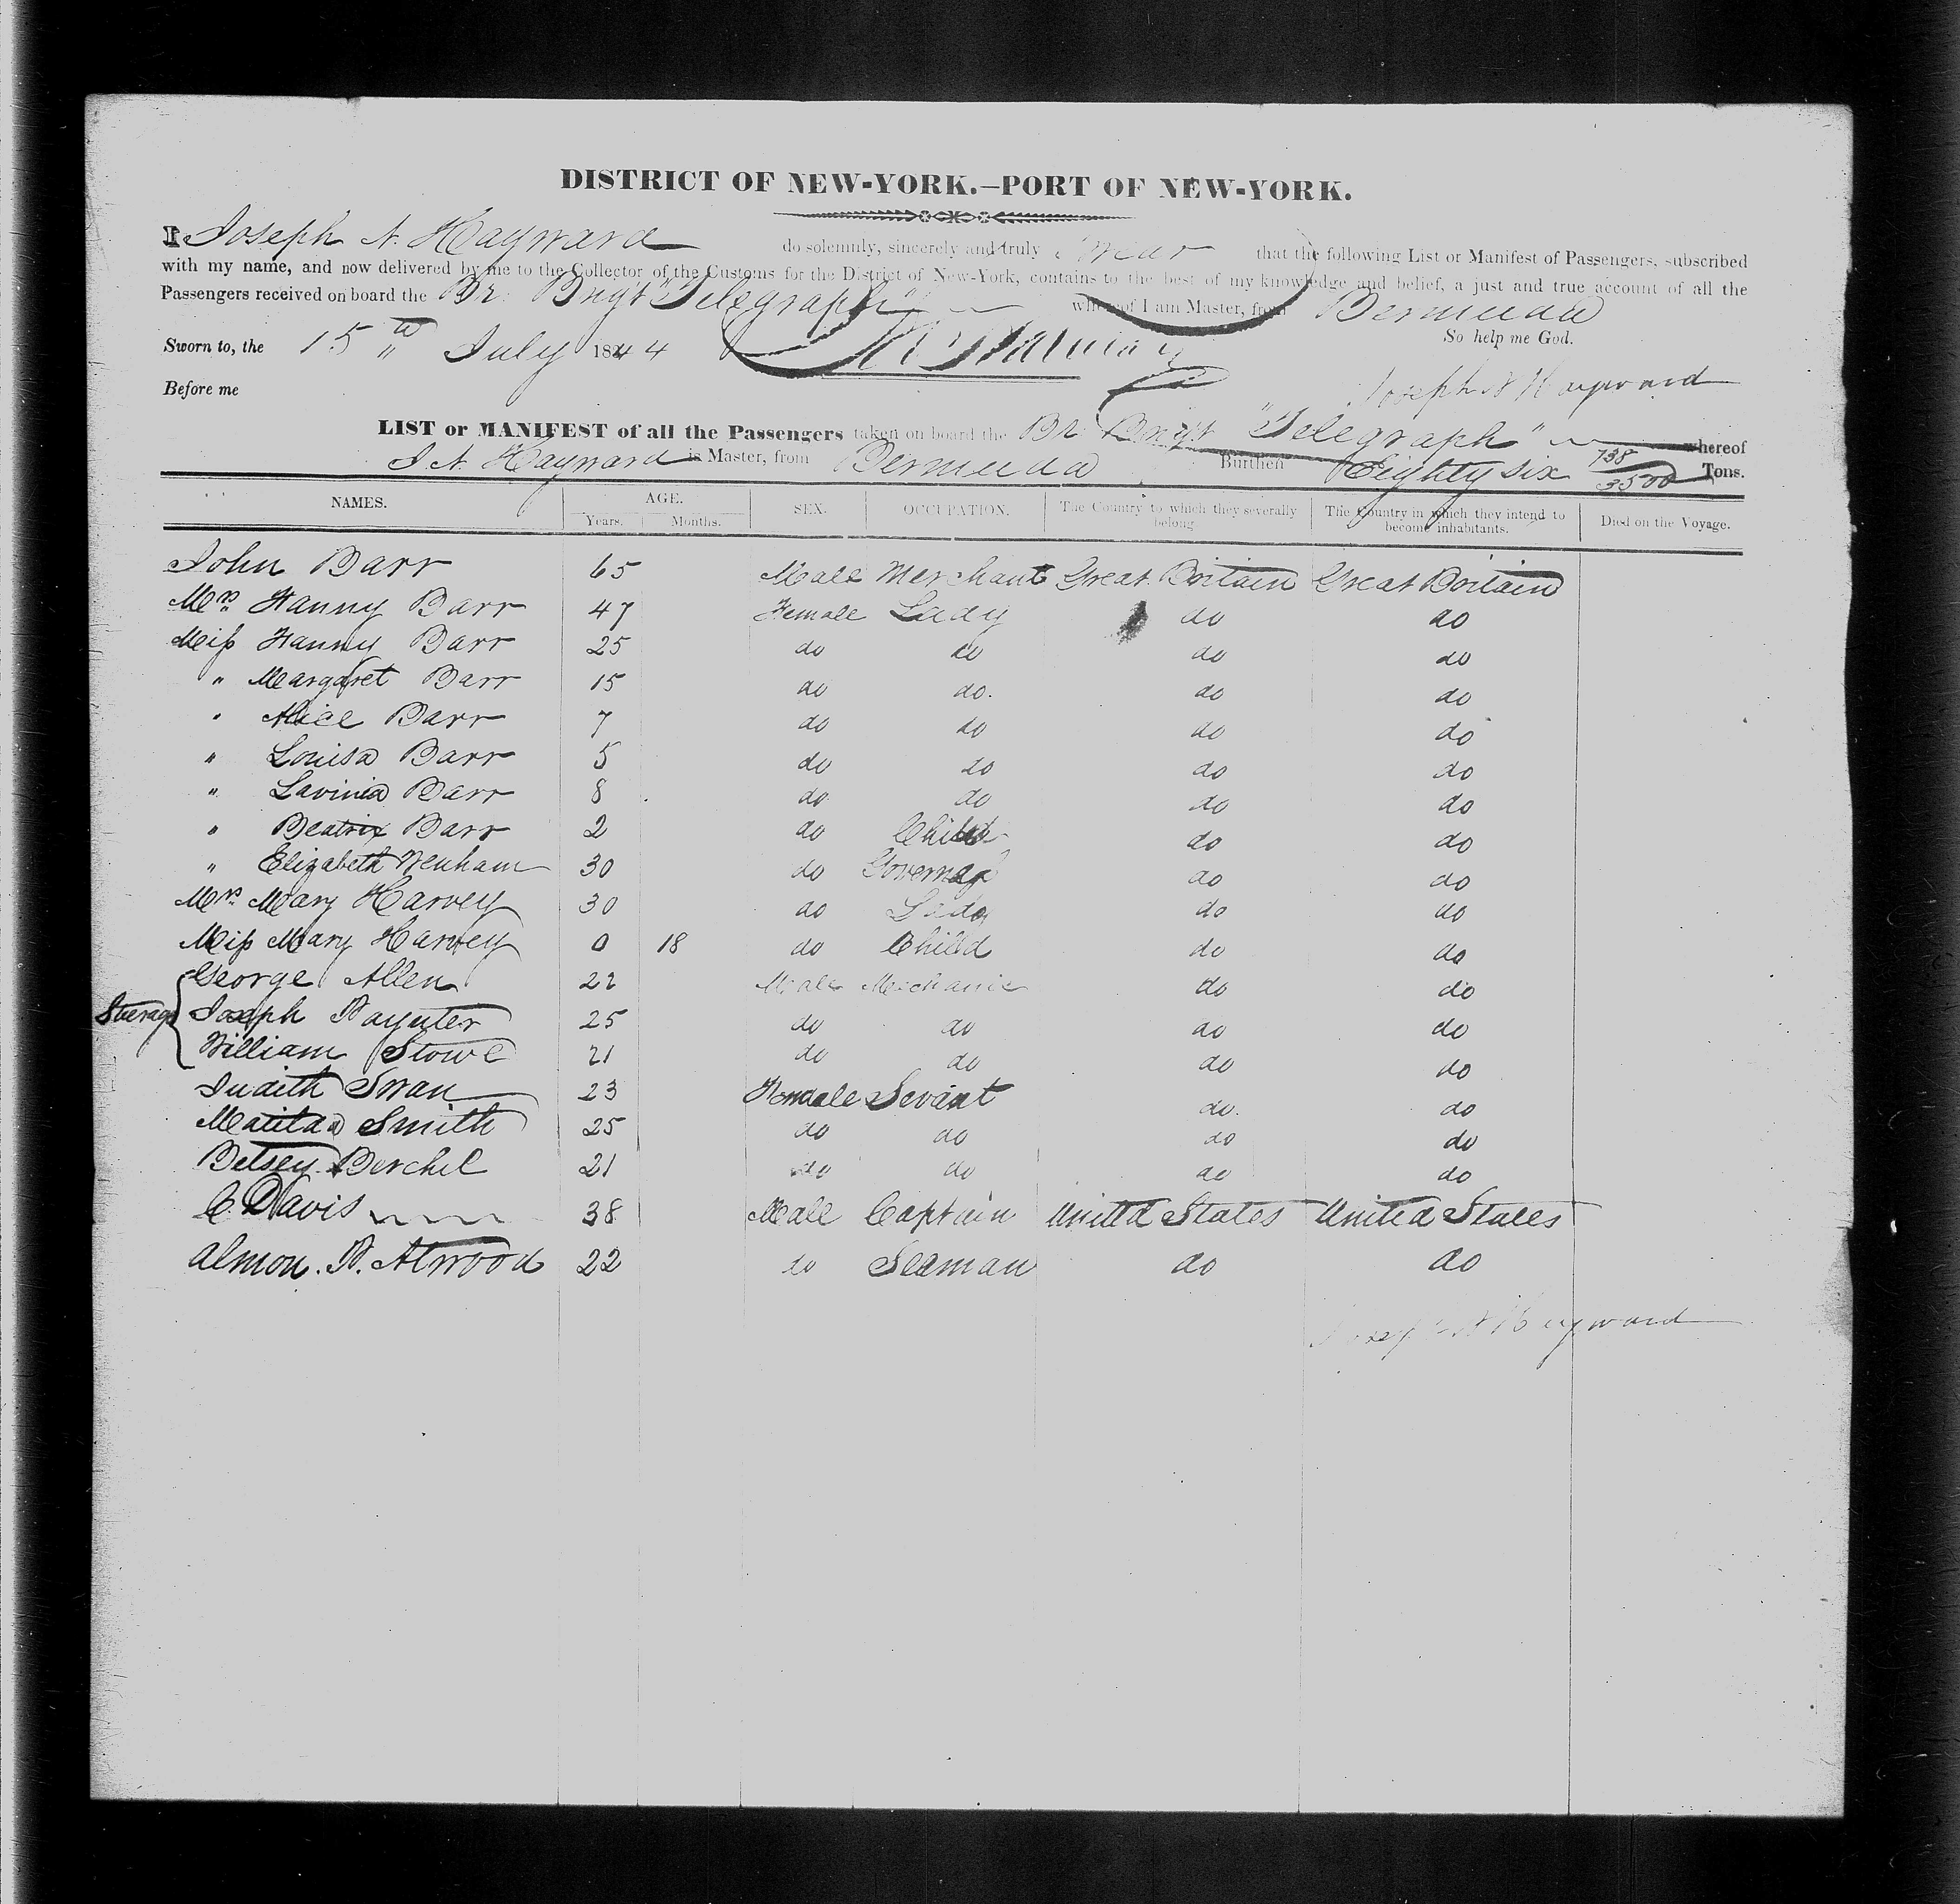 DISTRICT OF NEW-YORK.—PORT OF NEW-YORK.
I Joseph N. Hayward do solemnly, sincerely and truly swear that the following List or Manifest of Passengers, subscribed
with my name, and now delivered by me to the Collector of the Customs for the District of New-York, contains to the best of my knowledge and belief, a just and true account of all the
Passengers received on board the Br. Brigt "Telegraph" whereof I am Master, from Bermuda
Sworn to, the 15th July 1844 So help me God.
Before me Joseph N Hayward
LIST or MANIFEST of all the Passengers taken on board the Br. Brigt "Telegraph" whereof
J N. Hayward is Master, from Bermuda Burthen Eighty Six 738/3500 Tons.
NAMES. AGE. Years. Months. SEX. OCCUPATION. The Country to which they severally belong The Country in which they intend to become inhabitants. Died on the Voyage.
John Barr 65 Male Merchant Great Britain Great Britain
Mrs Fanny Barr 47 Female Lady do do
Miss Fanny Barr 25 do do do do
" Margaret Barr 15 do do. do do
" Alice Barr 7 do do do do
" Louisa Barr 5 do do do do
" Lavinia Barr 8 do do do do
" Beatrix Barr 2 do Child do do
" Elizabeth Newham 30 do Governess do do
Mrs. Mary Harvey 30 do Lady do do
Miss Mary Harvey 0 18 do Child do do
George Allen 22 Male Mechanic do do
Sterage Joseph Paynter 25 do do do do
William Stowe 21 do do do do
Judith Swan 23 Female Sevant do. do
Matilda Smith 25 do do do do
Betsey Berchel 21 do do do do
C. Davis 38 Male Captain United States United States
Almon. P. Atwood 22 do Seaman do do
Joseph N Hayward